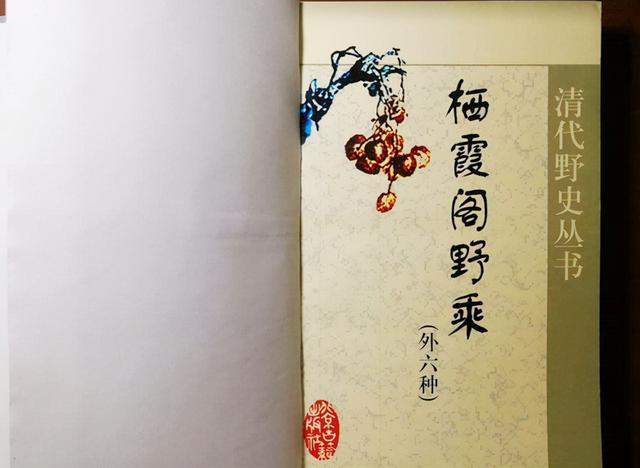 清代野史丛书
栖霞阁野乘
(外六种)
北京古籍
出版社